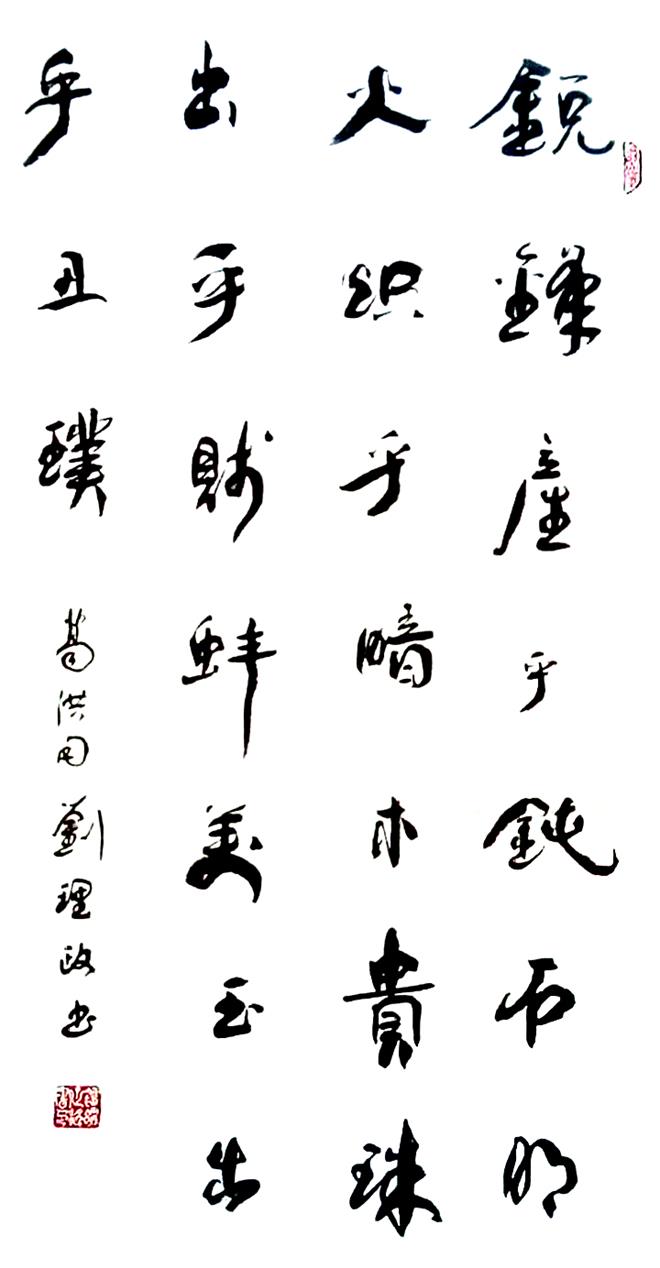 銳鋒產乎鈍石明
火织乎暗木貴珠
出乎賤蚌美玉出
乎丑璞
葛洪句 劉理政书